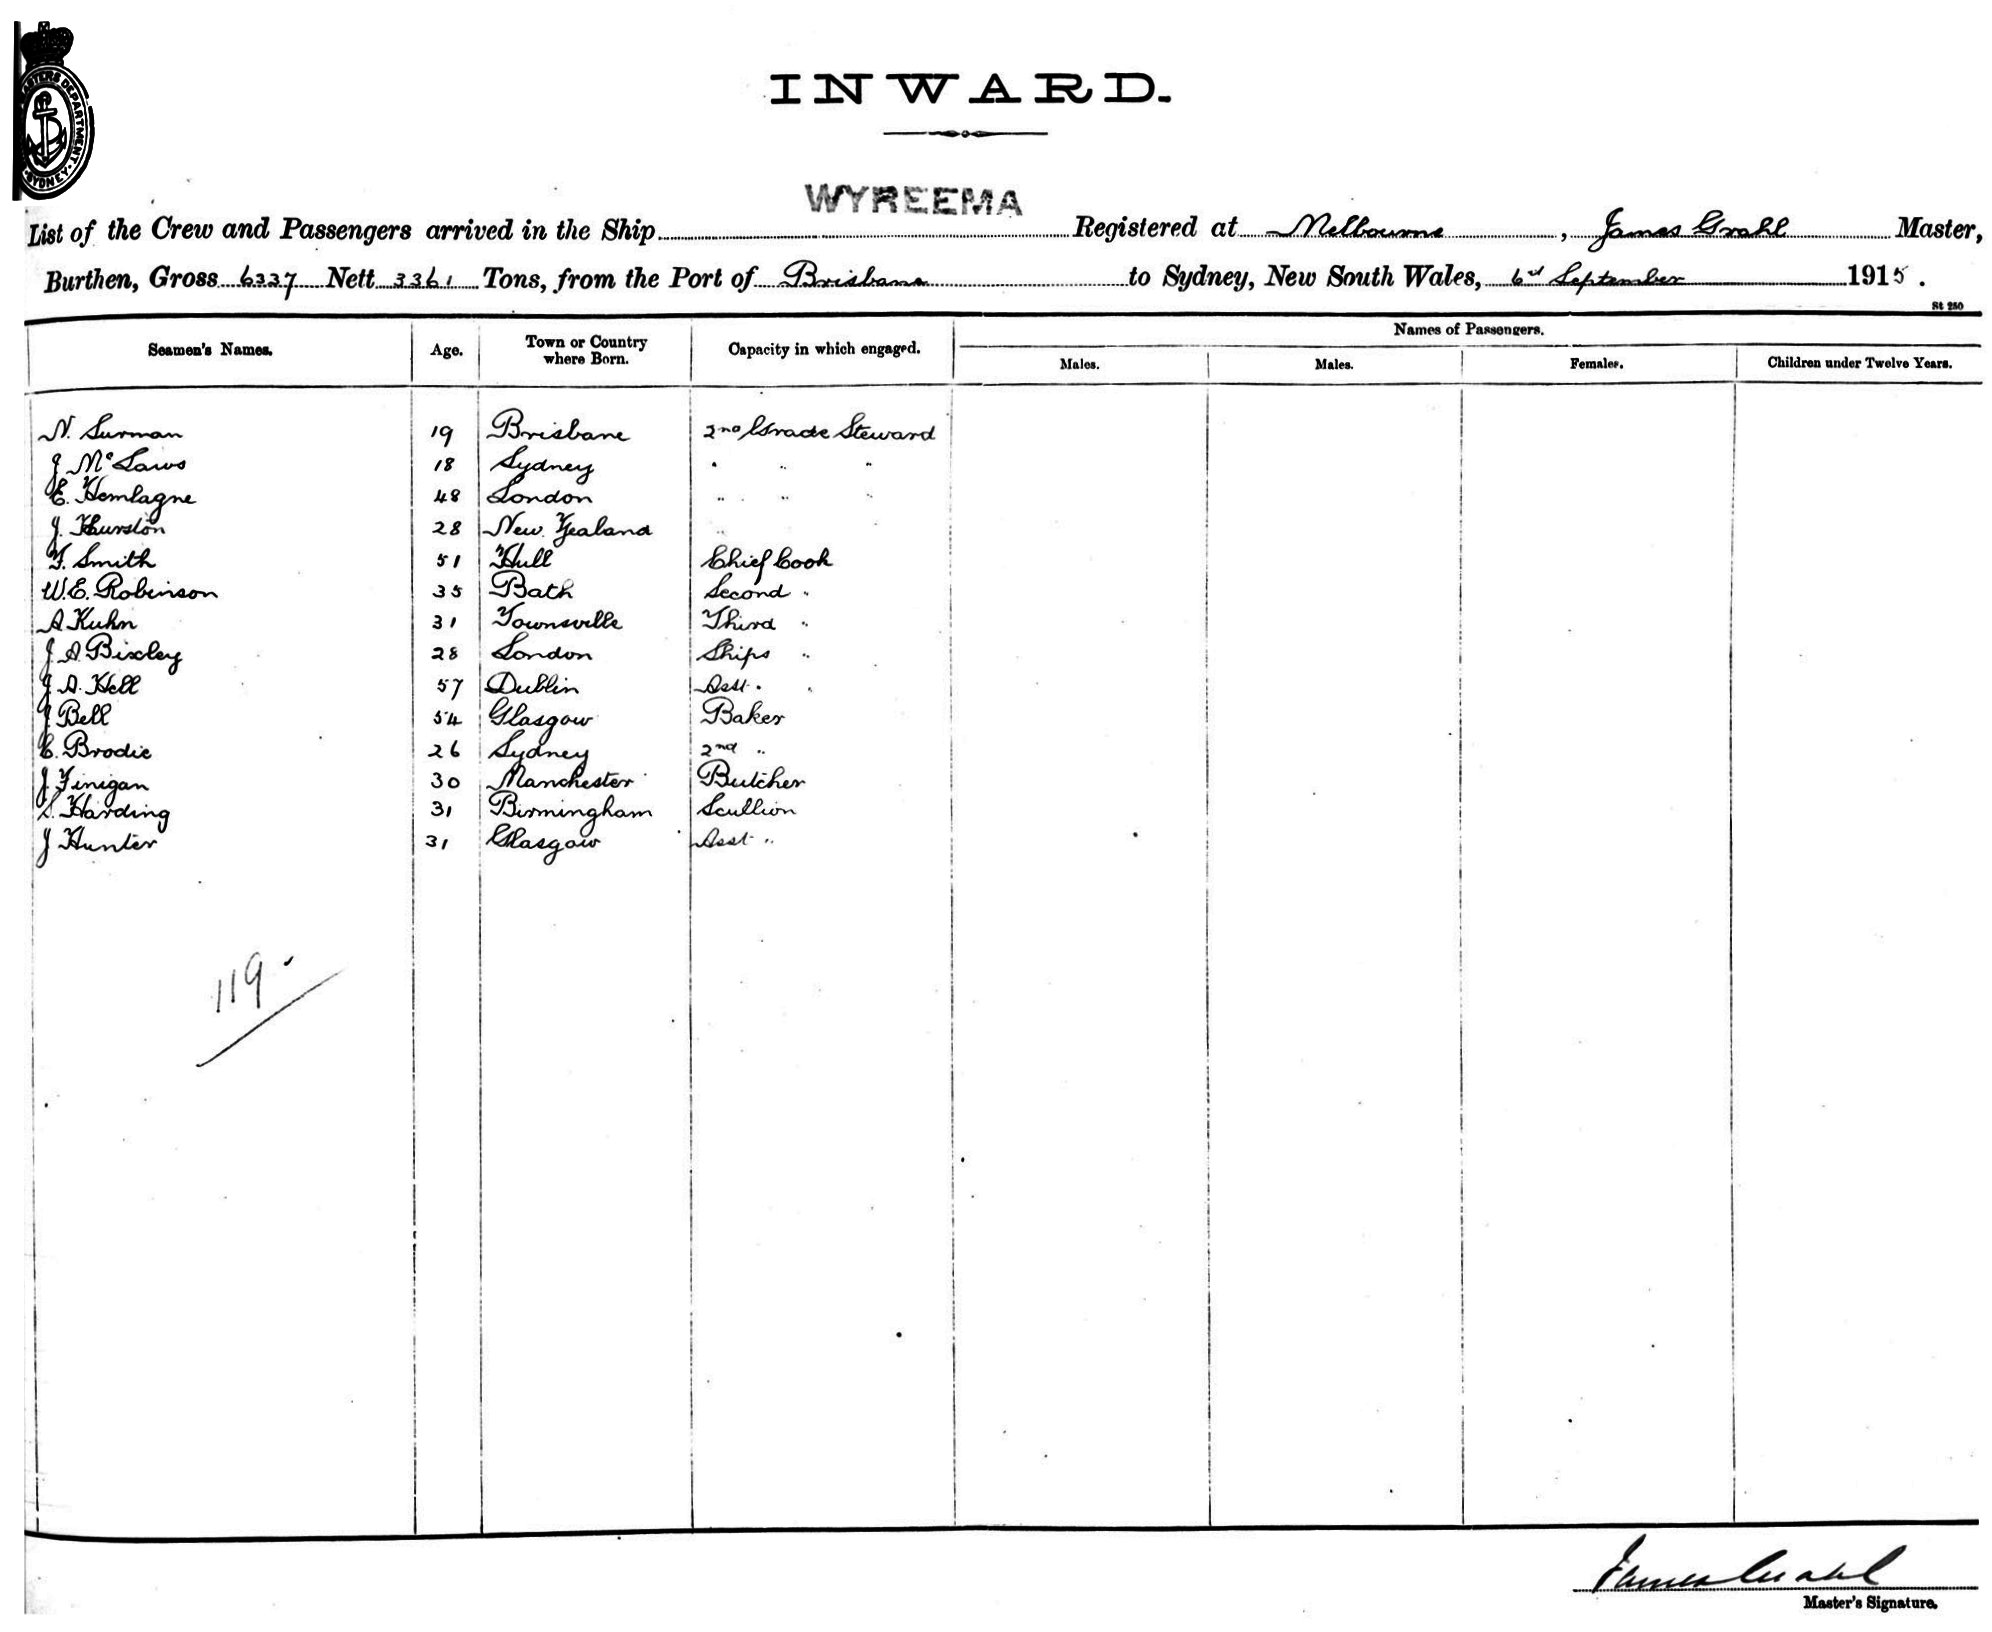 MASTERS DEPARTMENT. SYDNEY.
INWARD.
WYREEMA
List of the Crew and Passengers arrived in the Ship Registered at Melbourne, James Grahl Master,
Burthen, Gross 6337 Nett 3361 Tons, from the Port of Brisbane to Sydney, New South Wales, 6th September 1915.
St 250
Seamen's Names. Age. Town or Country where Born. Capacity in which engaged. Names of Passengers.
Males. Males. Females. Children under Twelve Years.
N. Surman 19 Brisbane 2nd Grade Steward
J McLaws 18 Sydney " " "
E. Hemlagne 48 London " " "
J. Thurston 28 New Zealand "
F. Smith 51 Hull Chief Cook
W.E. Robinson 35 Bath Second "
A Kuhn 31 Townsville Third "
J A Bixley 28 London Ships "
J A. Hell 57 Dublin Asst. "
J Bell 54 Glasgow Baker
E. Brodie 26 Sydney 2nd "
J Finigan 30 Manchester Butcher
S. Harding 31 Birmingham Scullion
J Hunter 31 Glasgow Asst "
119
James Grahl
Master's Signature.